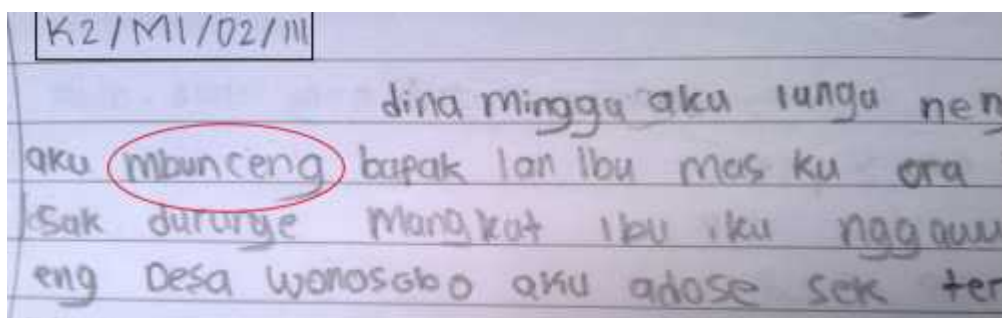 K2/M1/02/III
dina mingga aku lunga nen
aku mbunceng bapak lan Ibu mas ku ora
Sak durunge Mangkat ibu iku nggauw
eng Desa wonosobo aku adose sek ter